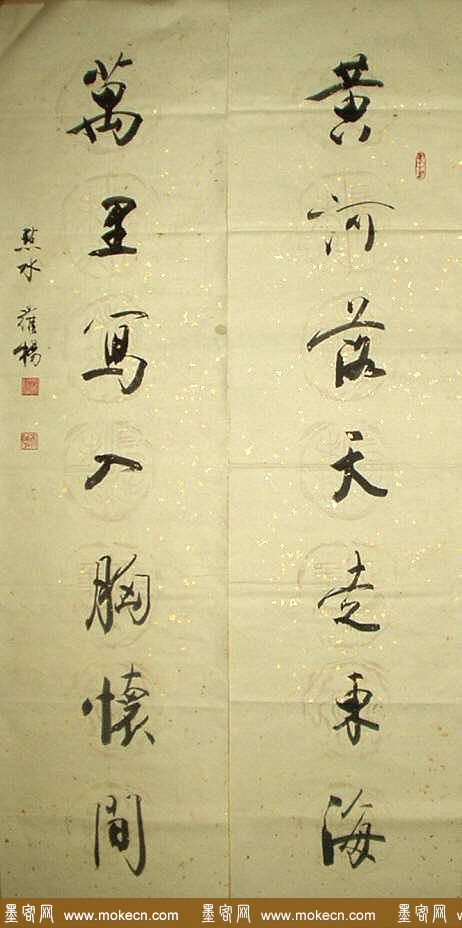 黄河落天走東海
萬里寫入胸懷間
墨客网 www.mokecn.com 墨客网 www.mokecn.com 墨客网